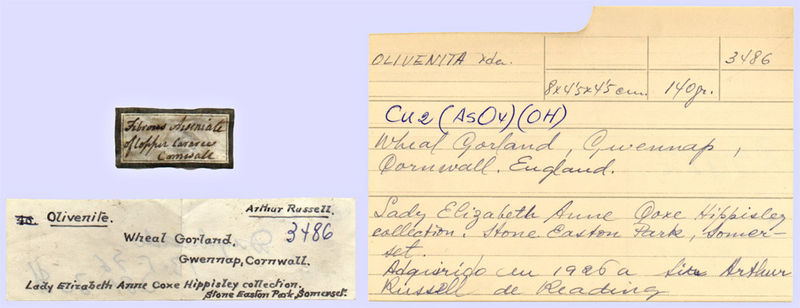 Fibrous Arseniate
of Copper Cararach
Cornwall
40. Olivenite.
Arthur Russell.
3486
Wheal Gorland,
Gwennap, Cornwall.
Lady Elizabeth Anne Coxe Hippisley collection.
Stone Easton Park, Somerset.
OLIVENITA xda.
3486
8x4'5x4'5 cm.
140gr.
Cu2 (AsO4) (OH)
Wheal Gorland, Gwennap,
Cornwall. England.
Lady Elizabeth Anne Coxe Hippisley
collection. Stone Easton Park, Somer-
set.
Adquirido en 1926 a Sir Arthur
Russell de Reading